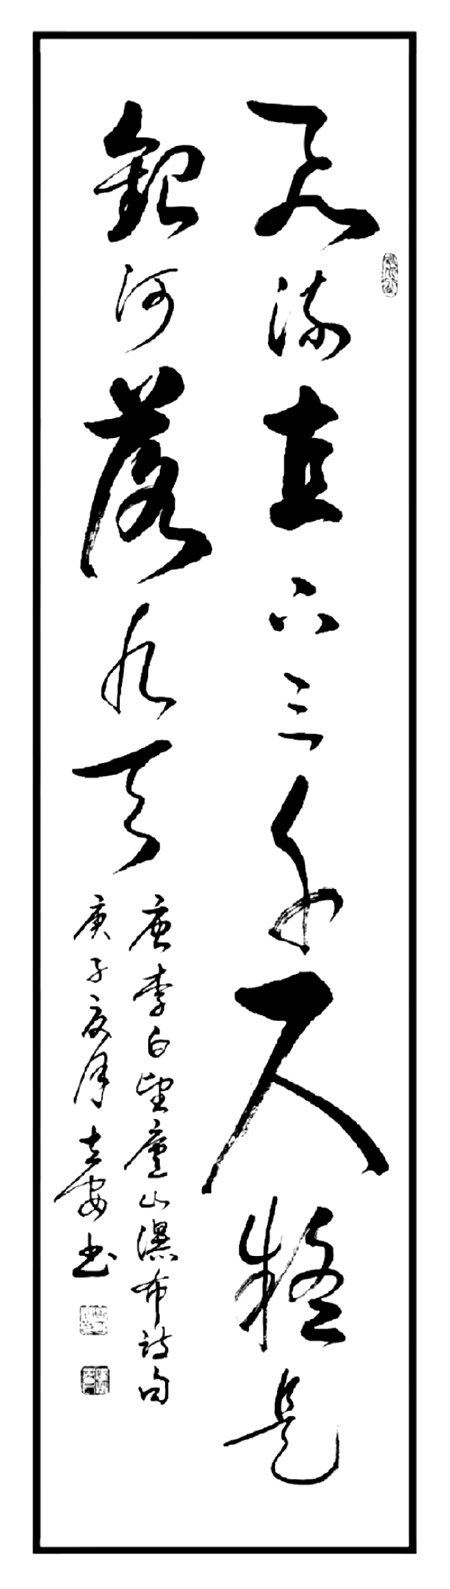 飛流直下三千尺疑是
銀河落九天
唐李白望廬山瀑布詩句
庚子夏月安书